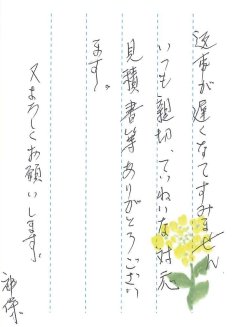 返事が遅くなてすみません
いつも親切、ていねいな対応
見積書等ありがとうござい
ます。
又よろしくお願いします。
神保